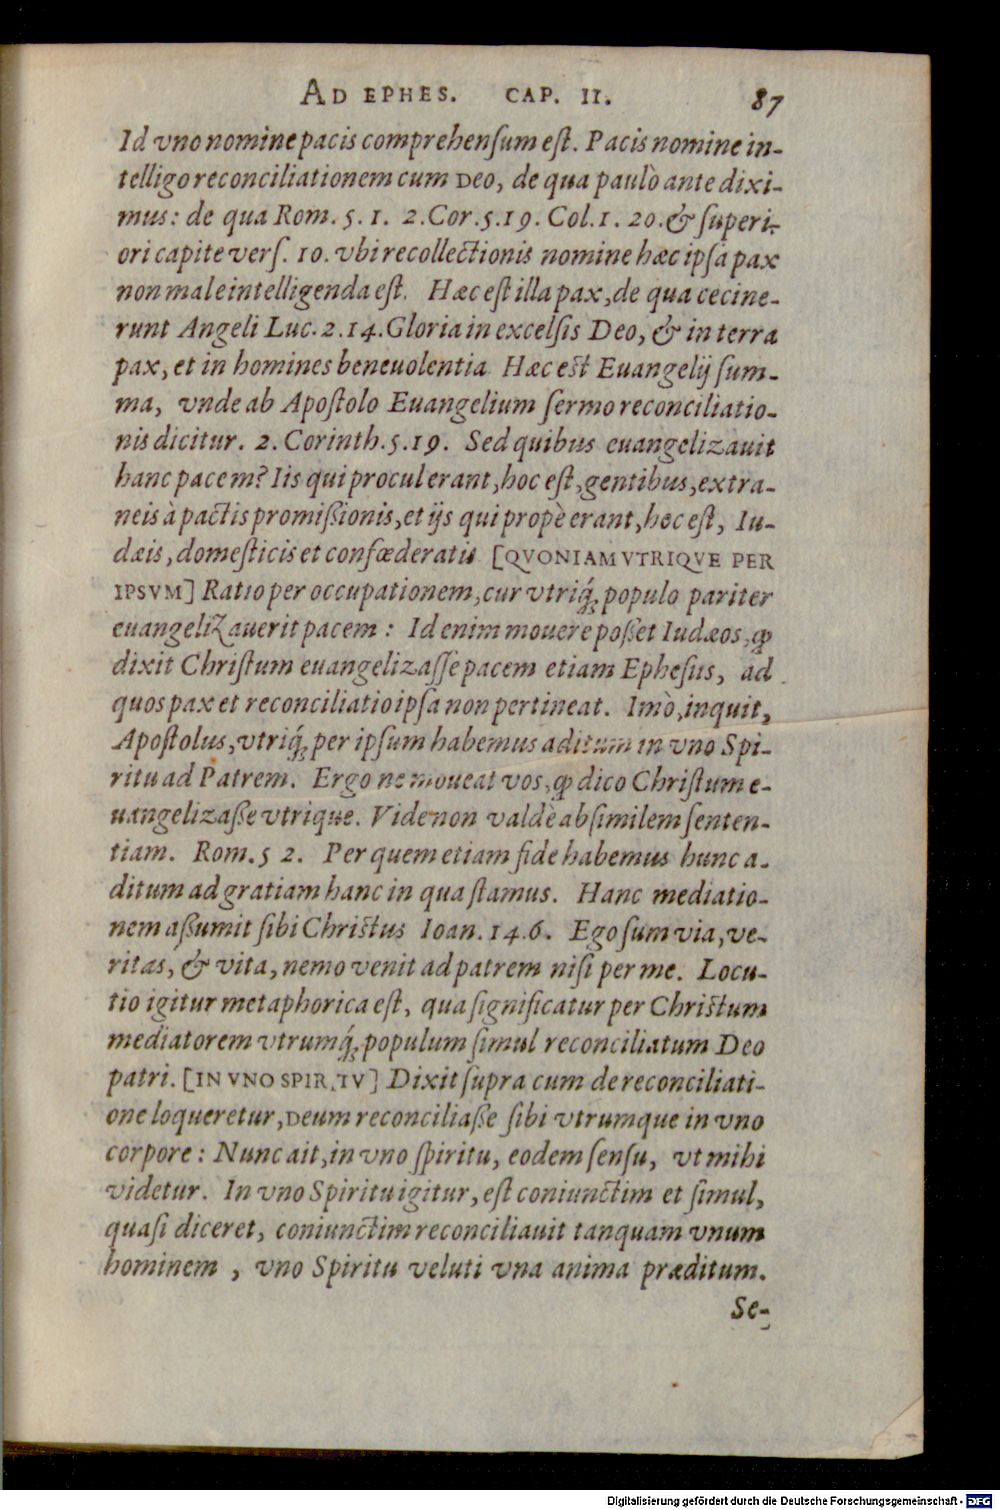 AD EPHES. CAP. II. 87
Id vno nomine pacis comprehensum est. Pacis nomine in-
telligo reconciliationem cum DEO, de qua paulò ante dixi-
mus: de qua Rom. 5. 1. 2. Cor. 5. 19. Col. 1. 20. & superi-
ori capite vers. 10. vbi recollectionis nomine hæc ipsa pax
non male intelligenda est. Hæc est illa pax, de qua cecine-
runt Angeli Luc. 2. 14. Gloria in excelsis Deo, & in terra
pax, et in homines beneuolentia Hæc est Euangelij sum-
ma, vnde ab Apostolo Euangelium sermo reconciliatio-
nis dicitur. 2. Corinth. 5. 19. Sed quibus euangelizauit
hanc pacem? Iis qui procul erant, hoc est, gentibus, extra-
neis à pactis promißionis, et ijs qui propè erant, hoc est, Iu-
dæis, domesticis et confœderatis [QVONIAM VTRIQVE PER
IPSVM] Ratio per occupationem, cur vtriq́ꝫ populo pariter
euangelizauerit pacem: Id enim mouere poßet Iudæos, ꝙ
dixit Christum euangelizasse pacem etiam Ephesiis, ad
quos pax et reconciliatio ipsa non pertineat. Imò, inquit,
Apostolus, vtriq́ꝫ per ipsum habemus aditum in vno Spi-
ritu ad Patrem. Ergo ne moueat vos, ꝙ dico Christum e-
uangelizaße vtrique. Vide non valdè absimilem senten-
tiam. Rom. 5 2. Per quem etiam fide habemus hunc a-
ditum ad gratiam hanc in qua stamus. Hanc mediatio-
nem aßumit sibi Christus Ioan. 14. 6. Ego sum via, ve-
ritas, & vita, nemo venit ad patrem nisi per me. Locu-
tio igitur metaphorica est, qua significatur per Christum
mediatorem vtrumq́ꝫ populum simul reconciliatum Deo
patri. [IN VNO SPIRITV] Dixit supra cum de reconciliati-
one loqueretur, DEum reconciliaße sibi vtrumque in vno
corpore: Nunc ait, in vno spiritu, eodem sensu, vt mihi
videtur. In vno Spiritu igitur, est coniunctim et simul,
quasi diceret, coniunctim reconciliauit tanquam vnum
hominem, vno Spiritu veluti vna anima præditum.
Se-
Digitalisierung gefördert durch die Deutsche Forschungsgemeinschaft - DFG